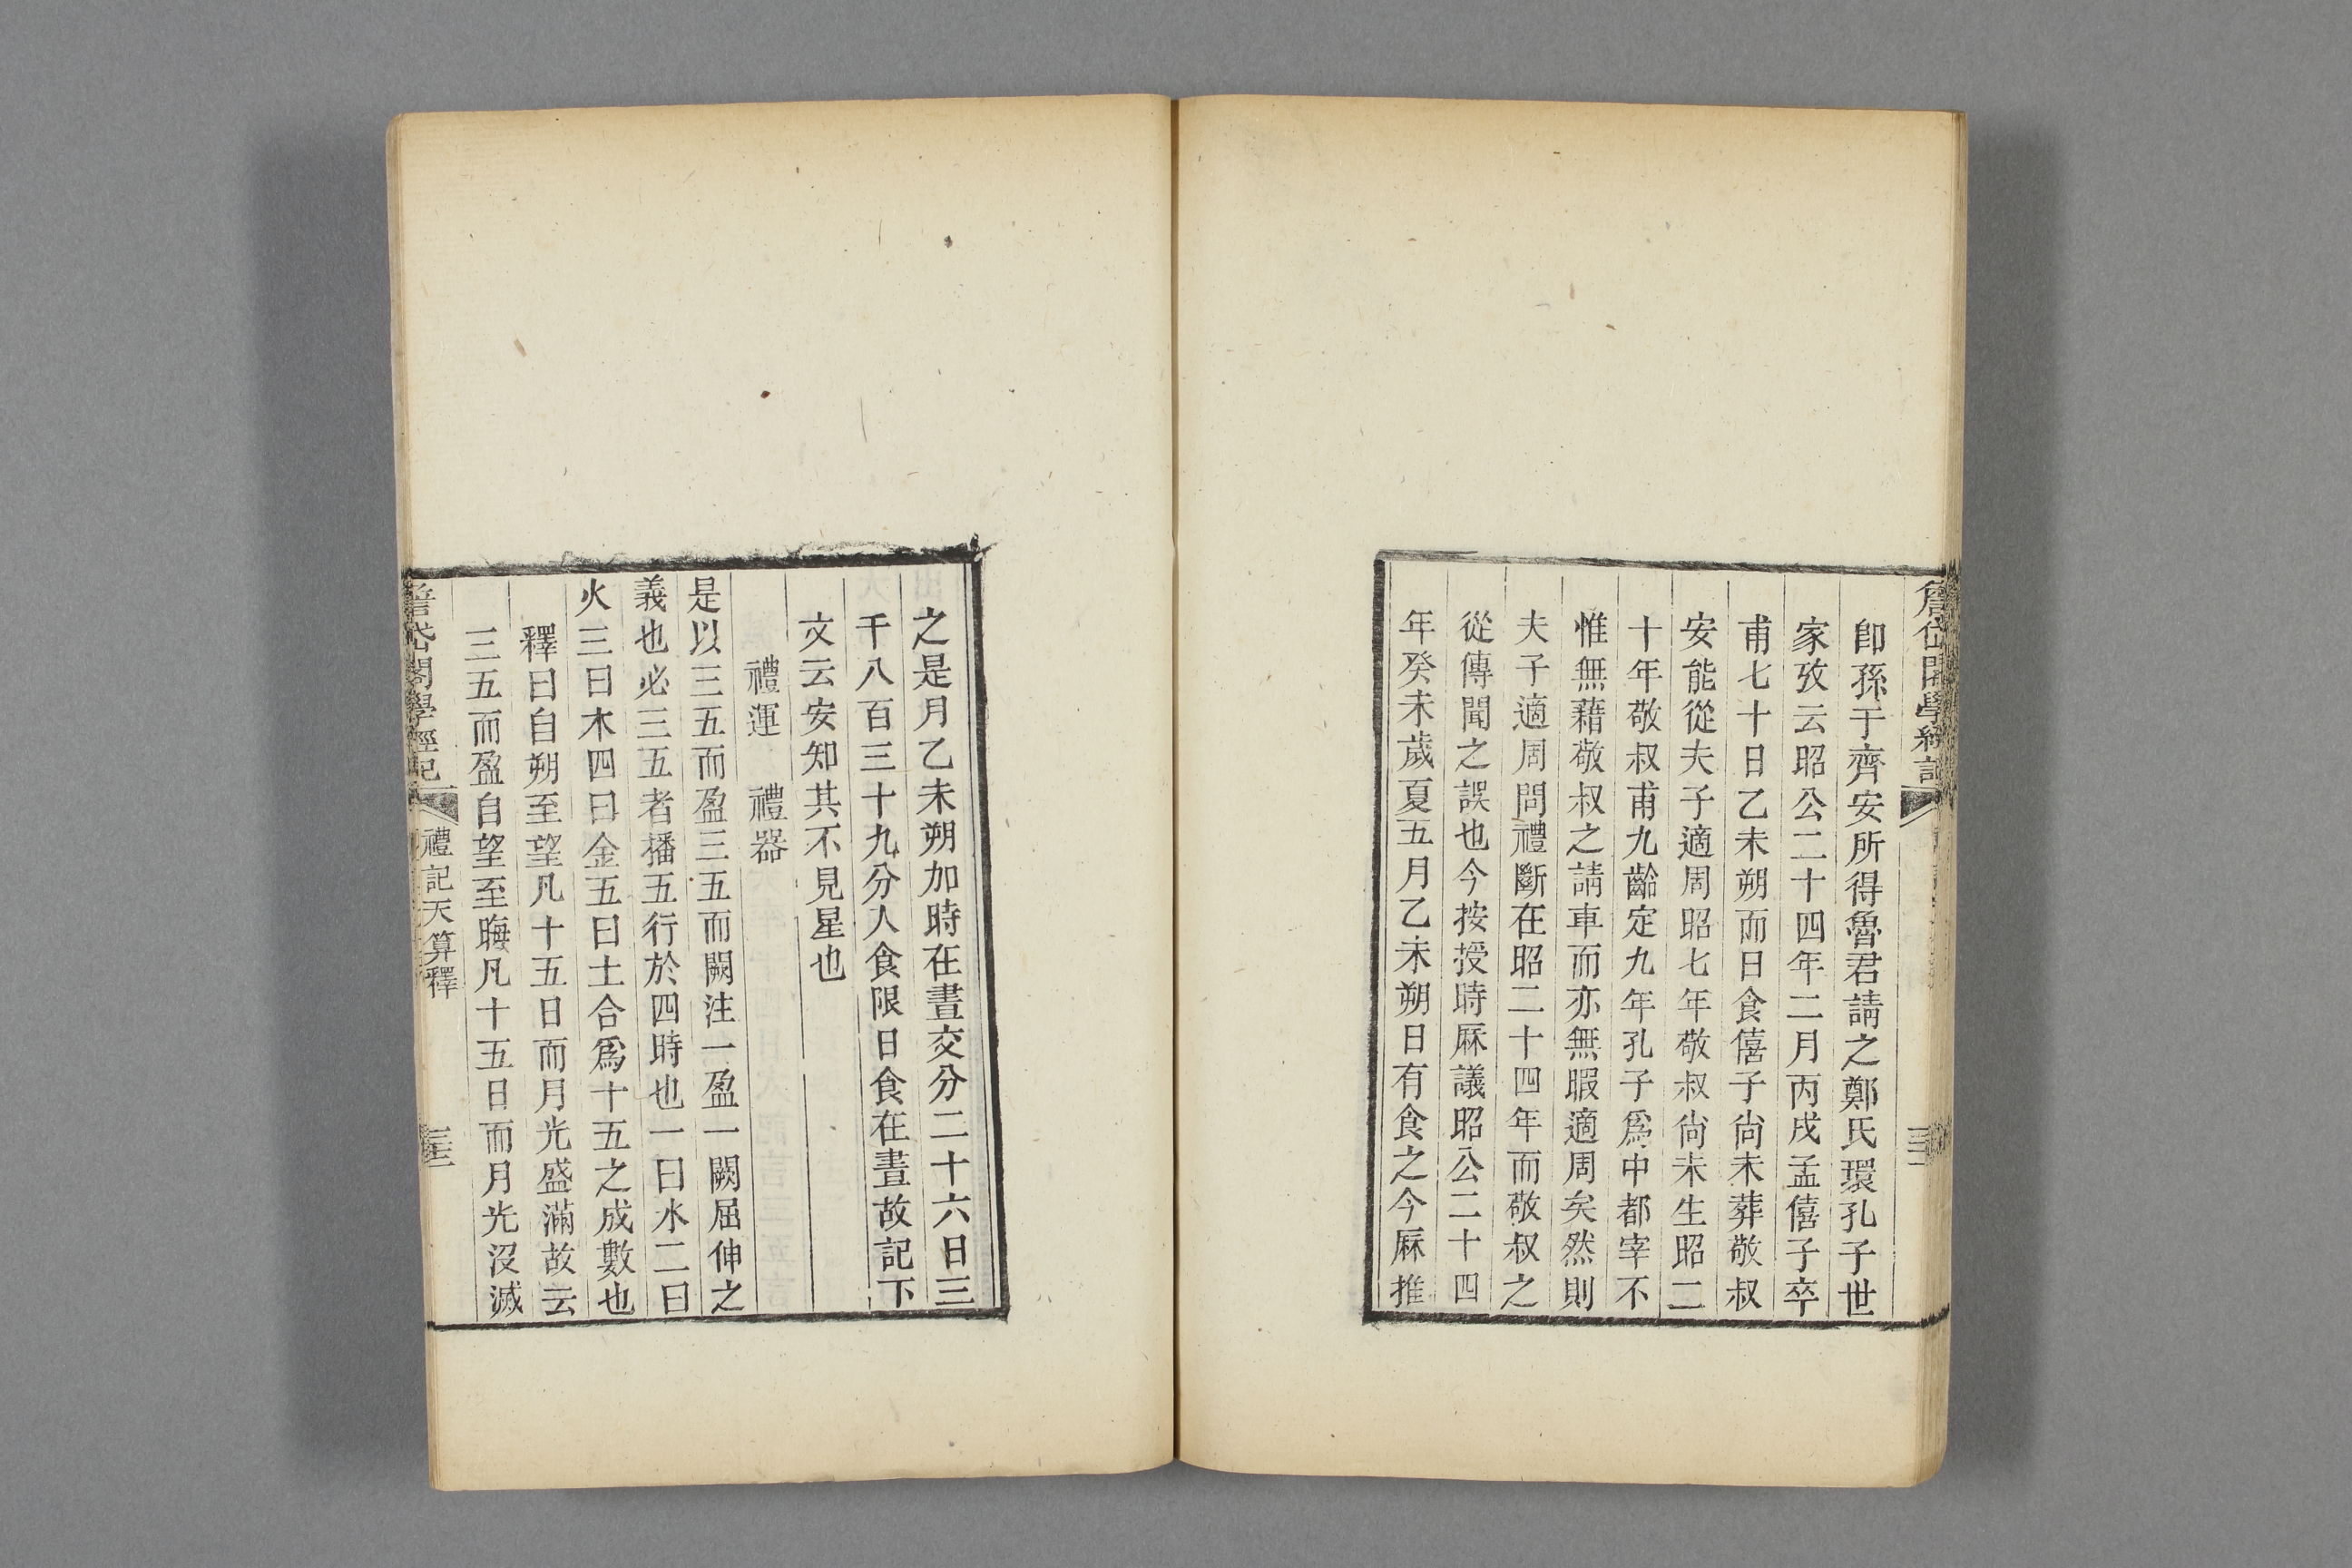 卽孫于齊安所得魯君請之鄭氏環孔子世
家攷云昭公二十四年二月丙戌孟僖子卒
甫七十日乙未朔而日食僖子尙未葬敬叔
安能從夫子適周昭七年敬叔尙未生昭二
十年敬叔甫九齡定九年孔子爲中都宰不
惟無藉敬叔之請車而亦無暇適周矣然則
夫子適周問禮斷在昭二十四年而敬叔之
從傳聞之誤也今按授時厤議昭公二十四
年癸未歲夏五月乙未朔日有食之今厤推
之是月乙未朔加時在晝交分二十六日三
千八百三十九分人食限日食在晝故記下
文云安知其不見星也
禮運 禮器
是以三五而盈三五而闕注一盈一闕屈伸之
義也必三五者播五行於四時也一曰水二曰
火三曰木四曰金五曰土合爲十五之成數也
釋曰自朔至望凡十五日而月光盛滿故云
三五而盈自望至晦凡十五日而月光沒滅
詹岱閣學經記 禮記天算釋